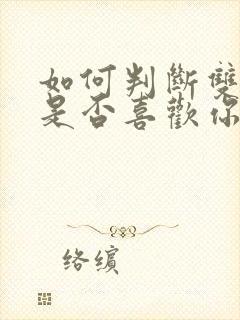 如何判斷雙
是否喜歡你
络缤